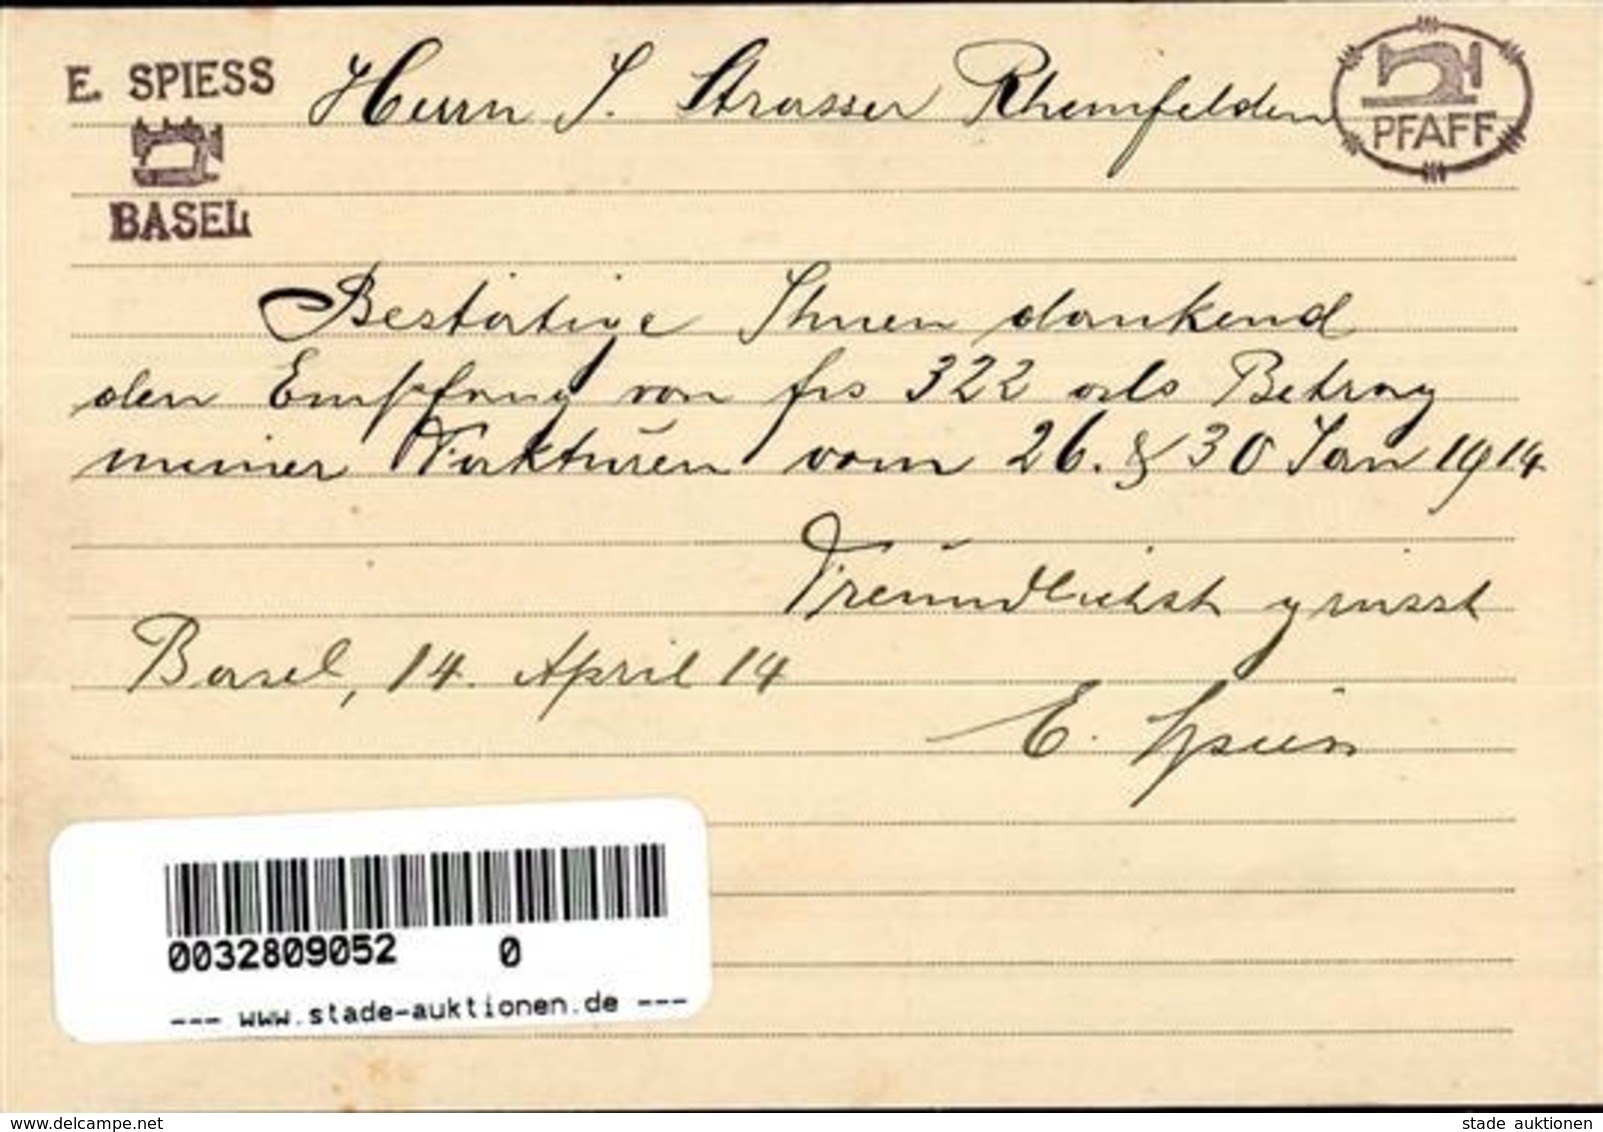 E. SPIESS
BASEL
Herrn J. Strasser Rheinfelden
PFAFF
Bestätige Ihnen dankend
den Empfang von frs 322 als Betrag
meiner Fakturen vom 26. & 30 Jan 1914
Freundlichst grüsst
Basel, 14. April 14
E. Spiess
0032809052 0
--- www.stade-auktionen.de ---
www.delcampe.net
stade auktionen